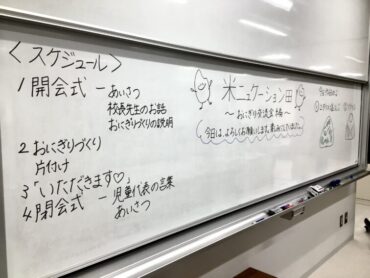 <スケジュール>
1 開会式 ー あいさつ
校長先生のお話
おにぎりづくりの説明
2 おにぎりづくり
片付け
3 「いただきます♡」
4 閉会式 ー 児童代表の言葉
あいさつ
米ニュケーション田
〜おにぎり交流会〜
今日は、よろしくお願いします。